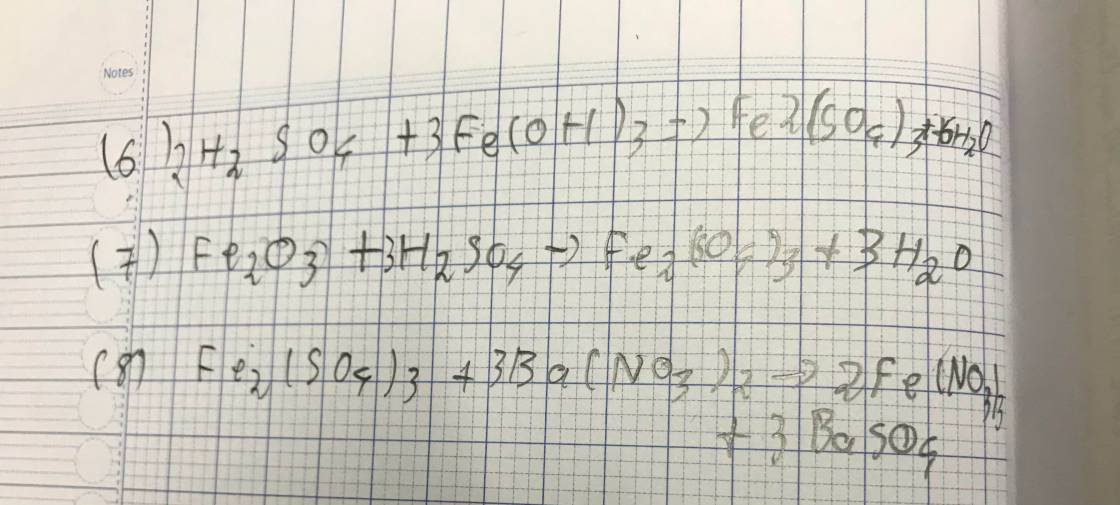 Notes
(6) 2H₂SO₄ + 3Fe(OH)₃ → Fe2(SO₄)₃ + 6H₂O
(7) Fe₂O₃ + 3H₂SO₄ → Fe₂(SO₄)₃ + 3H₂O
(8) Fe₂(SO₄)₃ + 3Ba(NO₃)₂ → 2Fe(NO₃)₃
+ 3BaSO₄